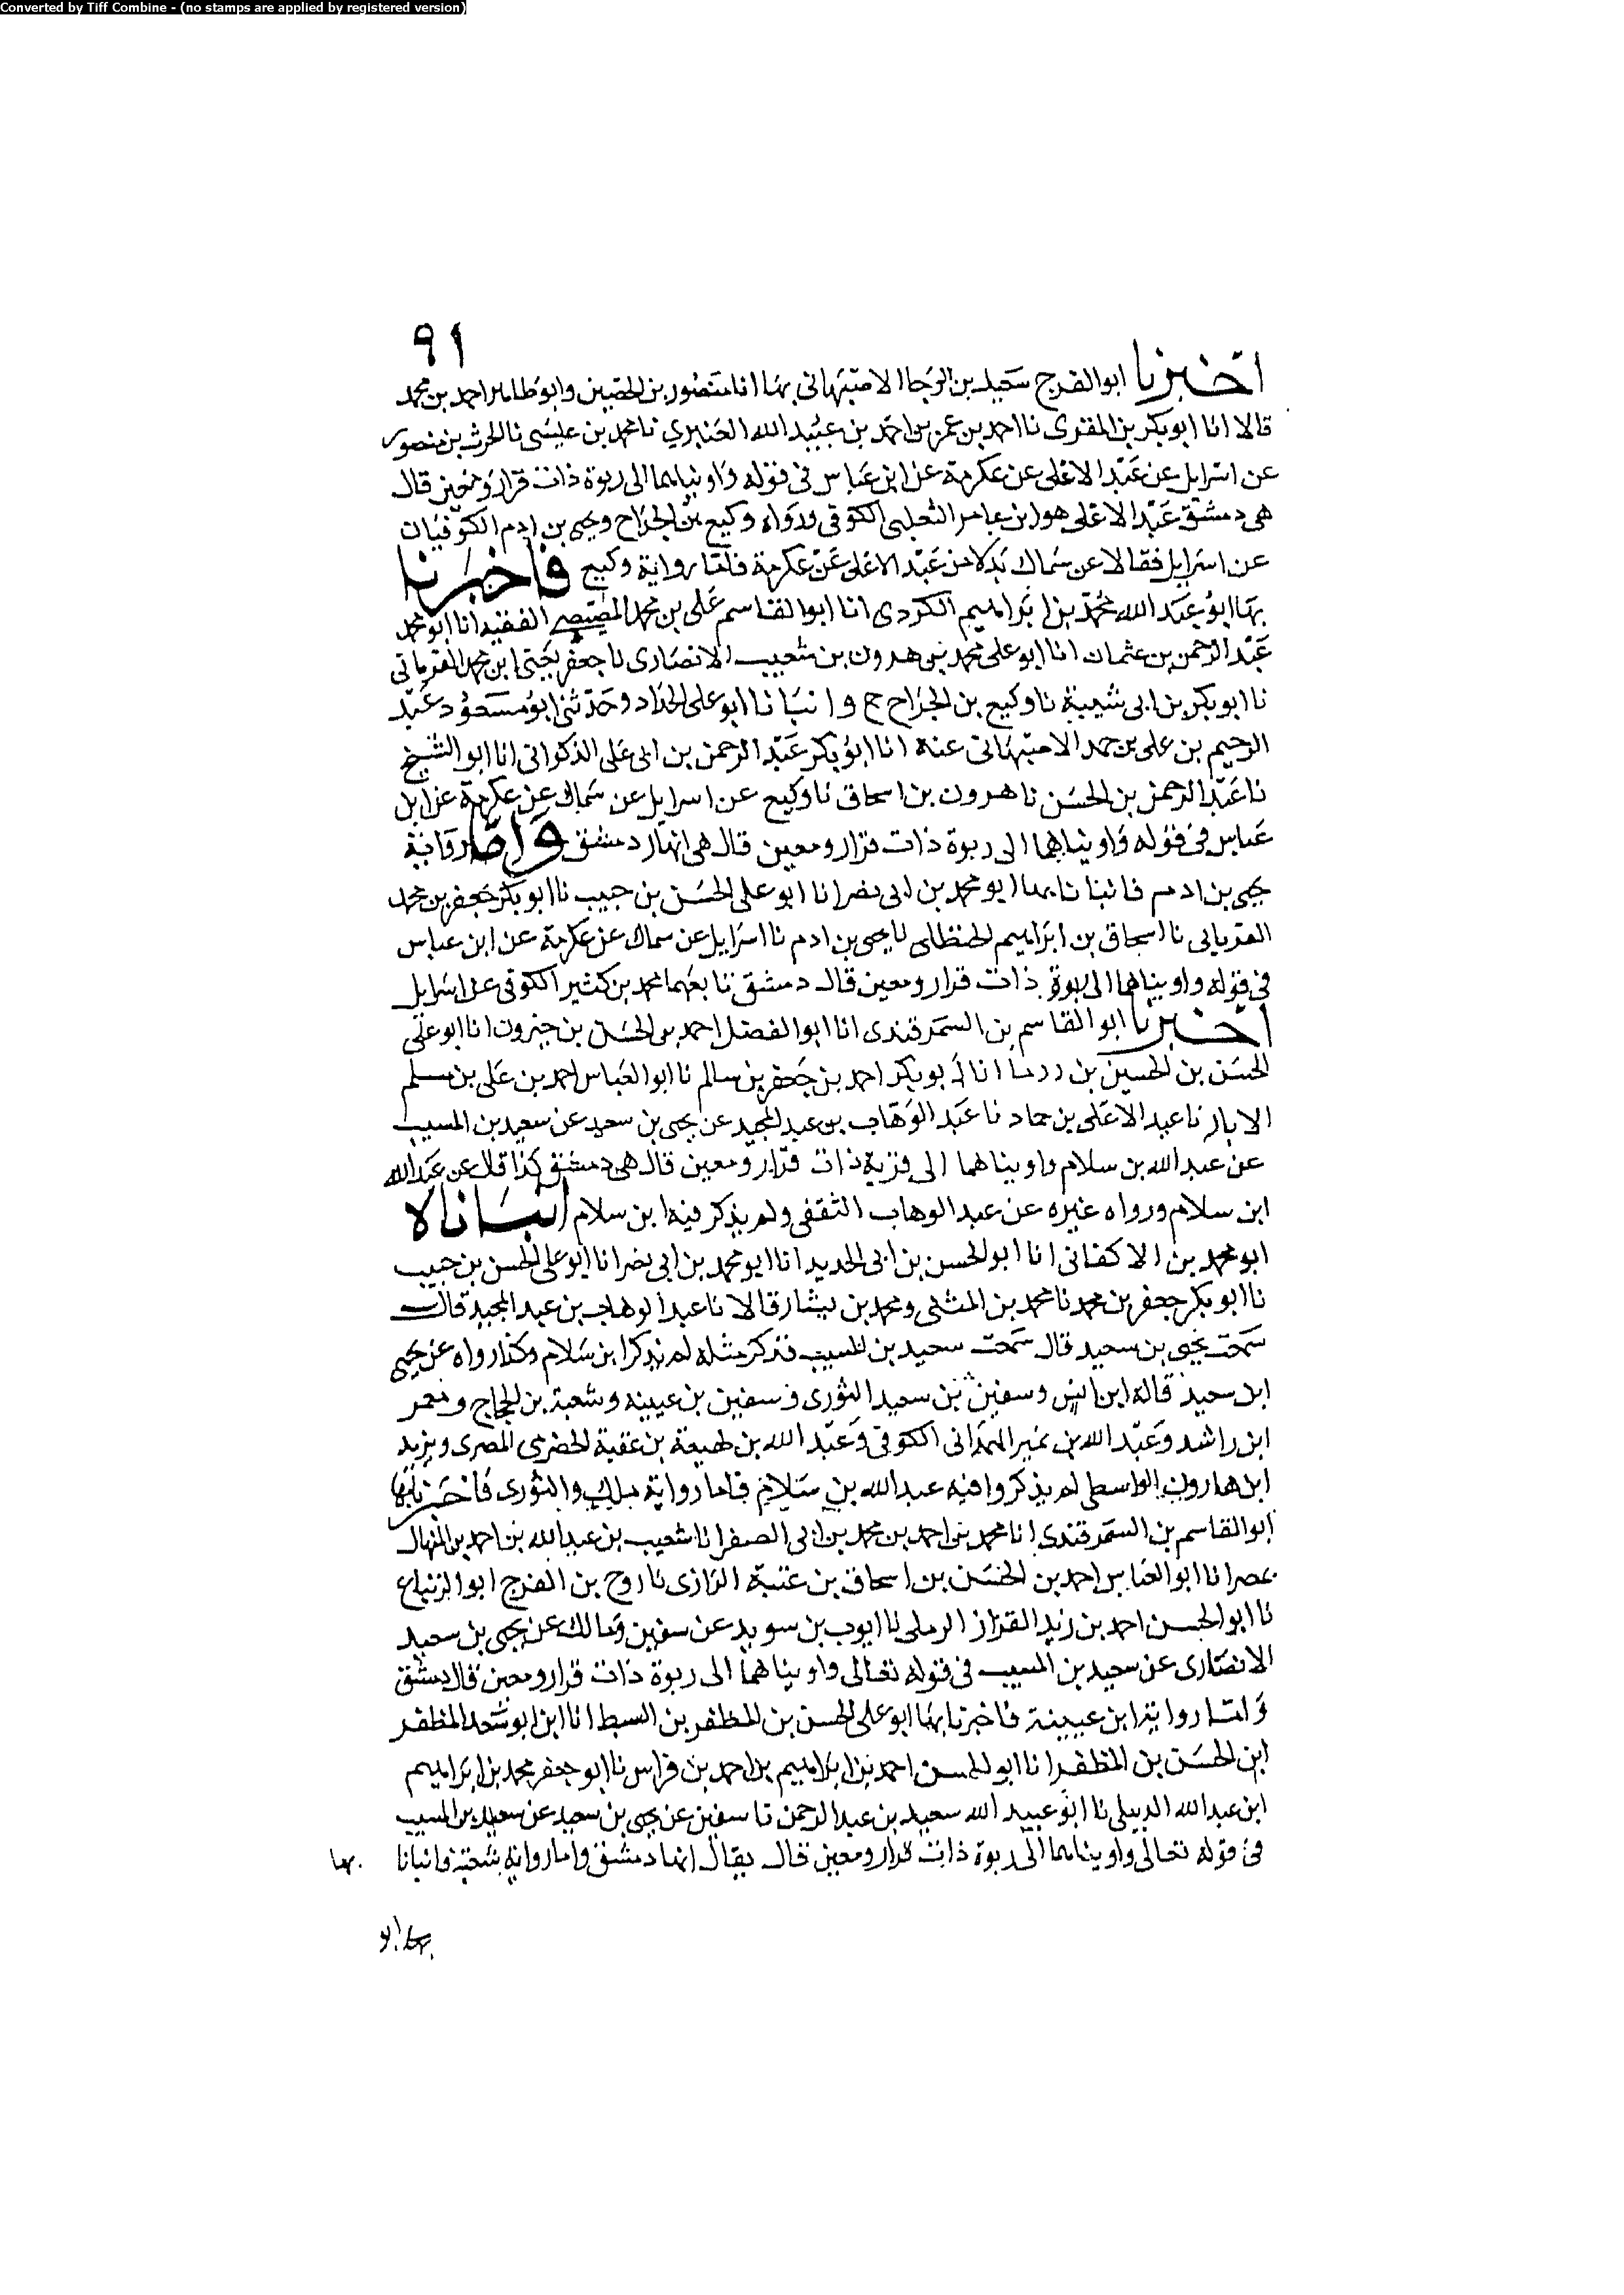 Converted by Tiff Combine - (no stamps are applied by registered version)
٩١
اخبرنا ابو الفرج سعيد بن الرجا الاصبهاني بها انا منصور بن الحسين وابو طاهر احمد بن محمد
قالا انا ابو بكر بن المقرى نا احمد بن عمر بن احمد بن عبيد الله العنبري نا محمد بن عيسى نا الحرث بن منصور
عن اسرايل عن عبد الاعلى عن عكرمة عن ابن عباس في قوله واويناهما الى ربوة ذات قرار ومعين قال
هي دمشق عبد الاعلى هو ابن عامر الثعلبى الكوفى ورواه وكيع بن الجراح ويحيى بن ادم الكوفيان
عن اسرايل فقالا عن سماك بدلا من عبد الاعلى عن عكرمة فاما رواية وكيع فاخبرنا
بها ابو عبد الله محمد بن ابراهيم الكردى انا ابو القاسم على بن محمد المصيصي الفقيه انا ابو محمد
عبد الرحمن بن عثمان انا ابو على محمد بن هرون بن شعيب الانصارى نا جعفر يحيى ابن محمد الفريابى
نا ابو بكر بن ابى شيبة نا وكيع بن الجراح ح وانبانا ابو على الحداد وحدثنى ابو مسعود عبد
الرحيم بن على بن حمد الاصبهانى عنه انا ابو بكر عبد الرحمن بن ابى على الذكوانى انا ابو الشيخ
نا عبد الرحمن بن الحسن نا هرون بن اسحاق نا وكيع عن اسرايل عن سماك عن عكرمة عن ابن
عباس في قوله واويناهما الى ربوة ذات قرار ومعين قال هى انهار دمشق واما رواية
يحيى بن ادم فانبانا بها ابو محمد بن ابى نصر انا ابو على الحسن بن حبيب نا ابو بكر جعفر بن محمد
الفريابى نا اسحاق بن ابراهيم الحنظلى نا يحيى بن ادم نا اسرايل عن سماك عن عكرمة عن ابن عباس
في قوله واويناهما الى ربوة ذات قرار ومعين قال دمشق تابعهما محمد بن كثير الكوفى عن اسرايل
اخبرنا ابو القاسم بن السمرقندى انا ابو الفضل احمد بن الحسن بن خيرون انا ابو على
الحسن بن الحسين بن دوما انا ابو بكر احمد بن جعفر بن سالم نا ابو العباس احمد بن على بن مسلم
الابار نا عبد الاعلى بن حماد نا عبد الوهاب بن عبد المجيد عن يحيى بن سعيد عن سعيد بن المسيب
عن عبد الله بن سلام واويناهما الى ربوة ذات قرار ومعين قال هى دمشق كذا قال عن عبد الله
ابن سلام ورواه غيره عن عبد الوهاب الثقفى ولم يذكر فيه ابن سلام انباناه
ابو محمد بن الاكفانى انا ابو الحسن بن ابى الحديد انا ابو محمد بن ابى نصر انا ابو على الحسن بن حبيب
نا ابو بكر جعفر بن محمد نا محمد بن المثنى ومحمد بن بشار قالا نا عبد الوهاب بن عبد المجيد قال
سمعت يحيى بن سعيد قال سمعت سعيد بن المسيب فذكر مثله لم يذكر ابن سلام وكذا رواه عن يحيى
ابن سعيد قاله ابن انس وسفين بن سعيد الثورى وسفين بن عيينه وشعبة بن الحجاج ومعمر
ابن راشد وعبد الله بن نمير الهمدانى الكوفى وعبد الله بن لهيعة بن عقبة الحضرمى المصرى ويزيد
ابن هارون الواسطى لم يذكروا فيه عبد الله بن سلام فاما رواية مالك والثورى فاخبرنا بها
ابو القاسم بن السمرقندى انا محمد بن احمد بن محمد بن ابى الصقر انا شعيب بن عبد الله بن احمد بن المنهال
بمصر انا ابو العباس احمد بن الحسن بن اسحاق بن عتبة الرازى نا روح بن الفرج ابو الزنباع
نا ابو الحسن احمد بن زيد القزاز الرملى نا ايوب بن سويد عن سفين ومالك عن يحيى بن سعيد
الانصارى عن سعيد بن المسيب فى قوله تعالى واويناهما الى ربوة ذات قرار ومعين قال دمشق
واما رواية ابن عيينة فاخبرنا بها ابو على الحسن بن المظفر بن السبط انا ابن ابو سعد المظفر
ابن الحسن بن المظفر انا ابو الحسن احمد بن ابراهيم بن احمد بن فراس نا ابو جعفر محمد بن ابراهيم
ابن عبد الله الديبلى نا ابو عبيد الله سعيد بن عبد الرحمن نا سفين عن يحيى بن سعيد عن سعيد بن المسيب
فى قوله تعالى واويناهما الى ربوة ذات قرار ومعين قال يقال انها دمشق واما رواية شعبة فانبانا بها